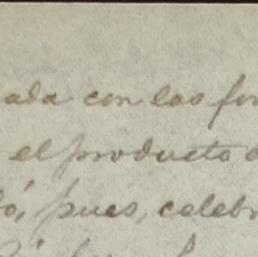 ada con las for
el producto d
ó, pues, celebr